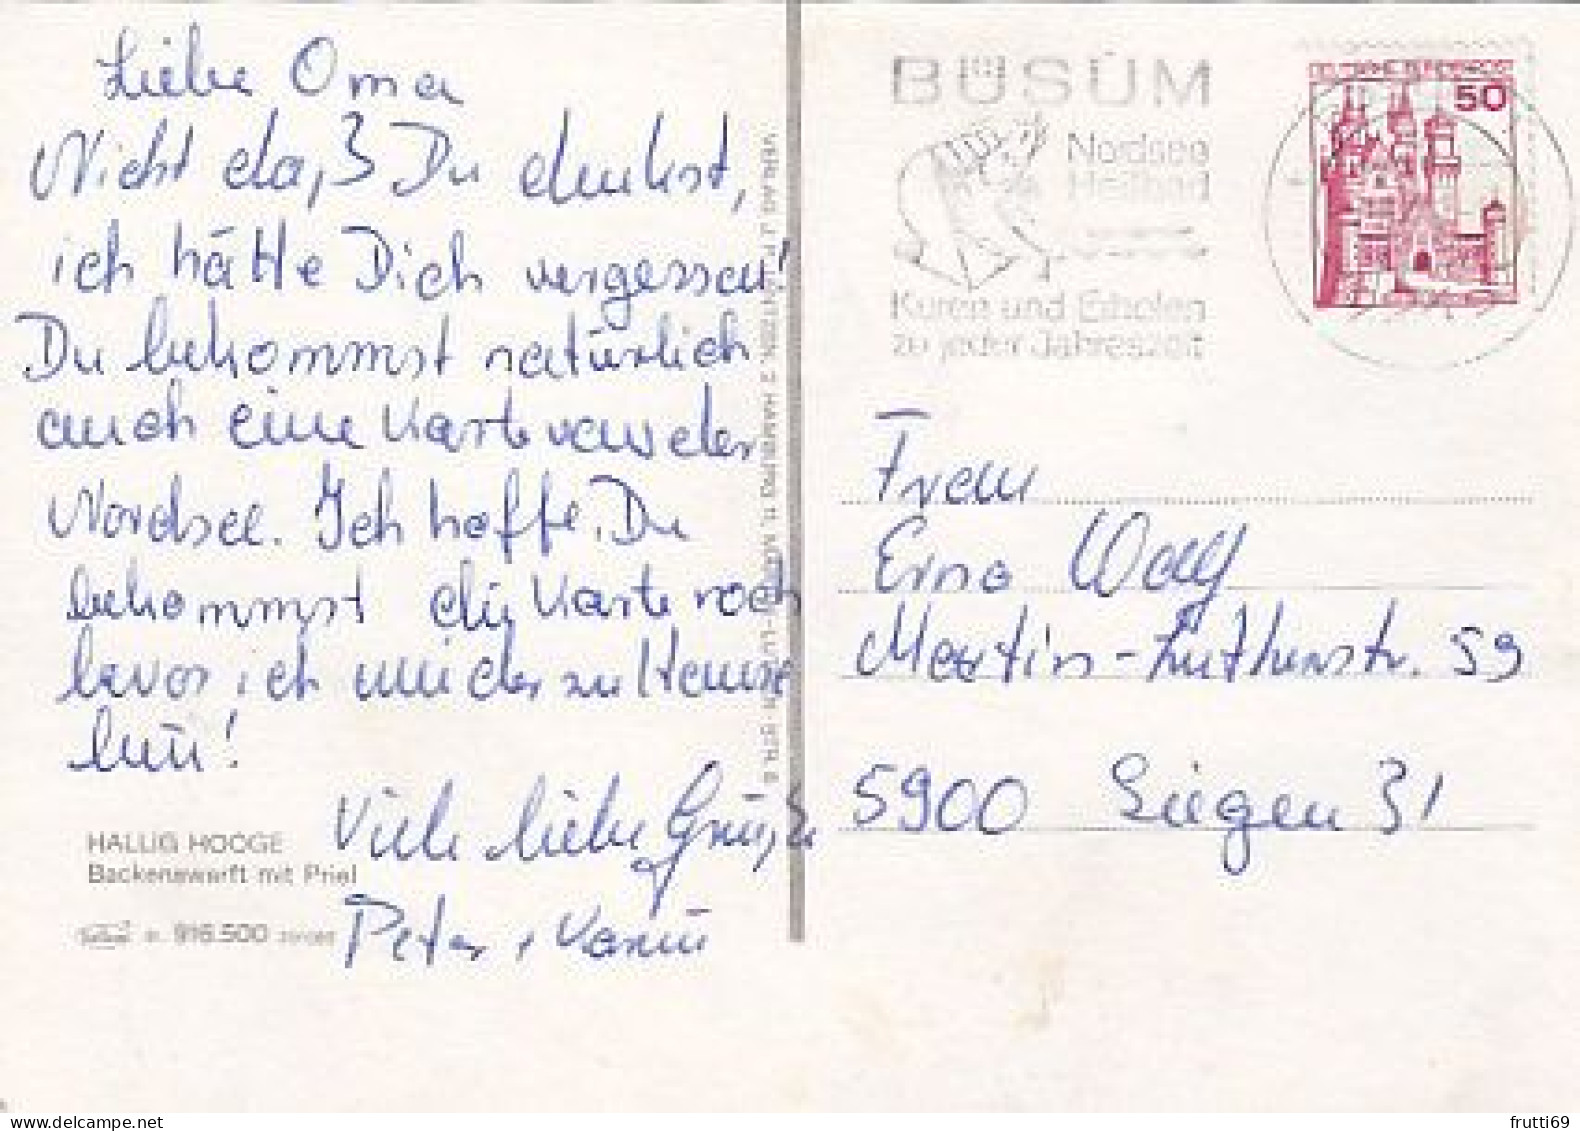 Liebe Oma
Nicht da,3 Du denkst,
ich hätte Dich vergessen!
Du bekommst natürlich
auch eine Karte von der
Nordsee. Ich hoffe, Du
bekommst die Karte noch
bevor ich wieder zu Hause
bin!
Viele liebe Grüße
Peter + Karin
HALLIG HOOGE
Backenswarft mit Priel
916.500
BÜSUM
Nordsee
Heilbad
Kuren und Erholen
zu jeder Jahreszeit
DEUTSCHE BUNDESPOST
50
Frau
Erna
Martin-Lutherstr. 59
5900 Siegen 31
frutti69